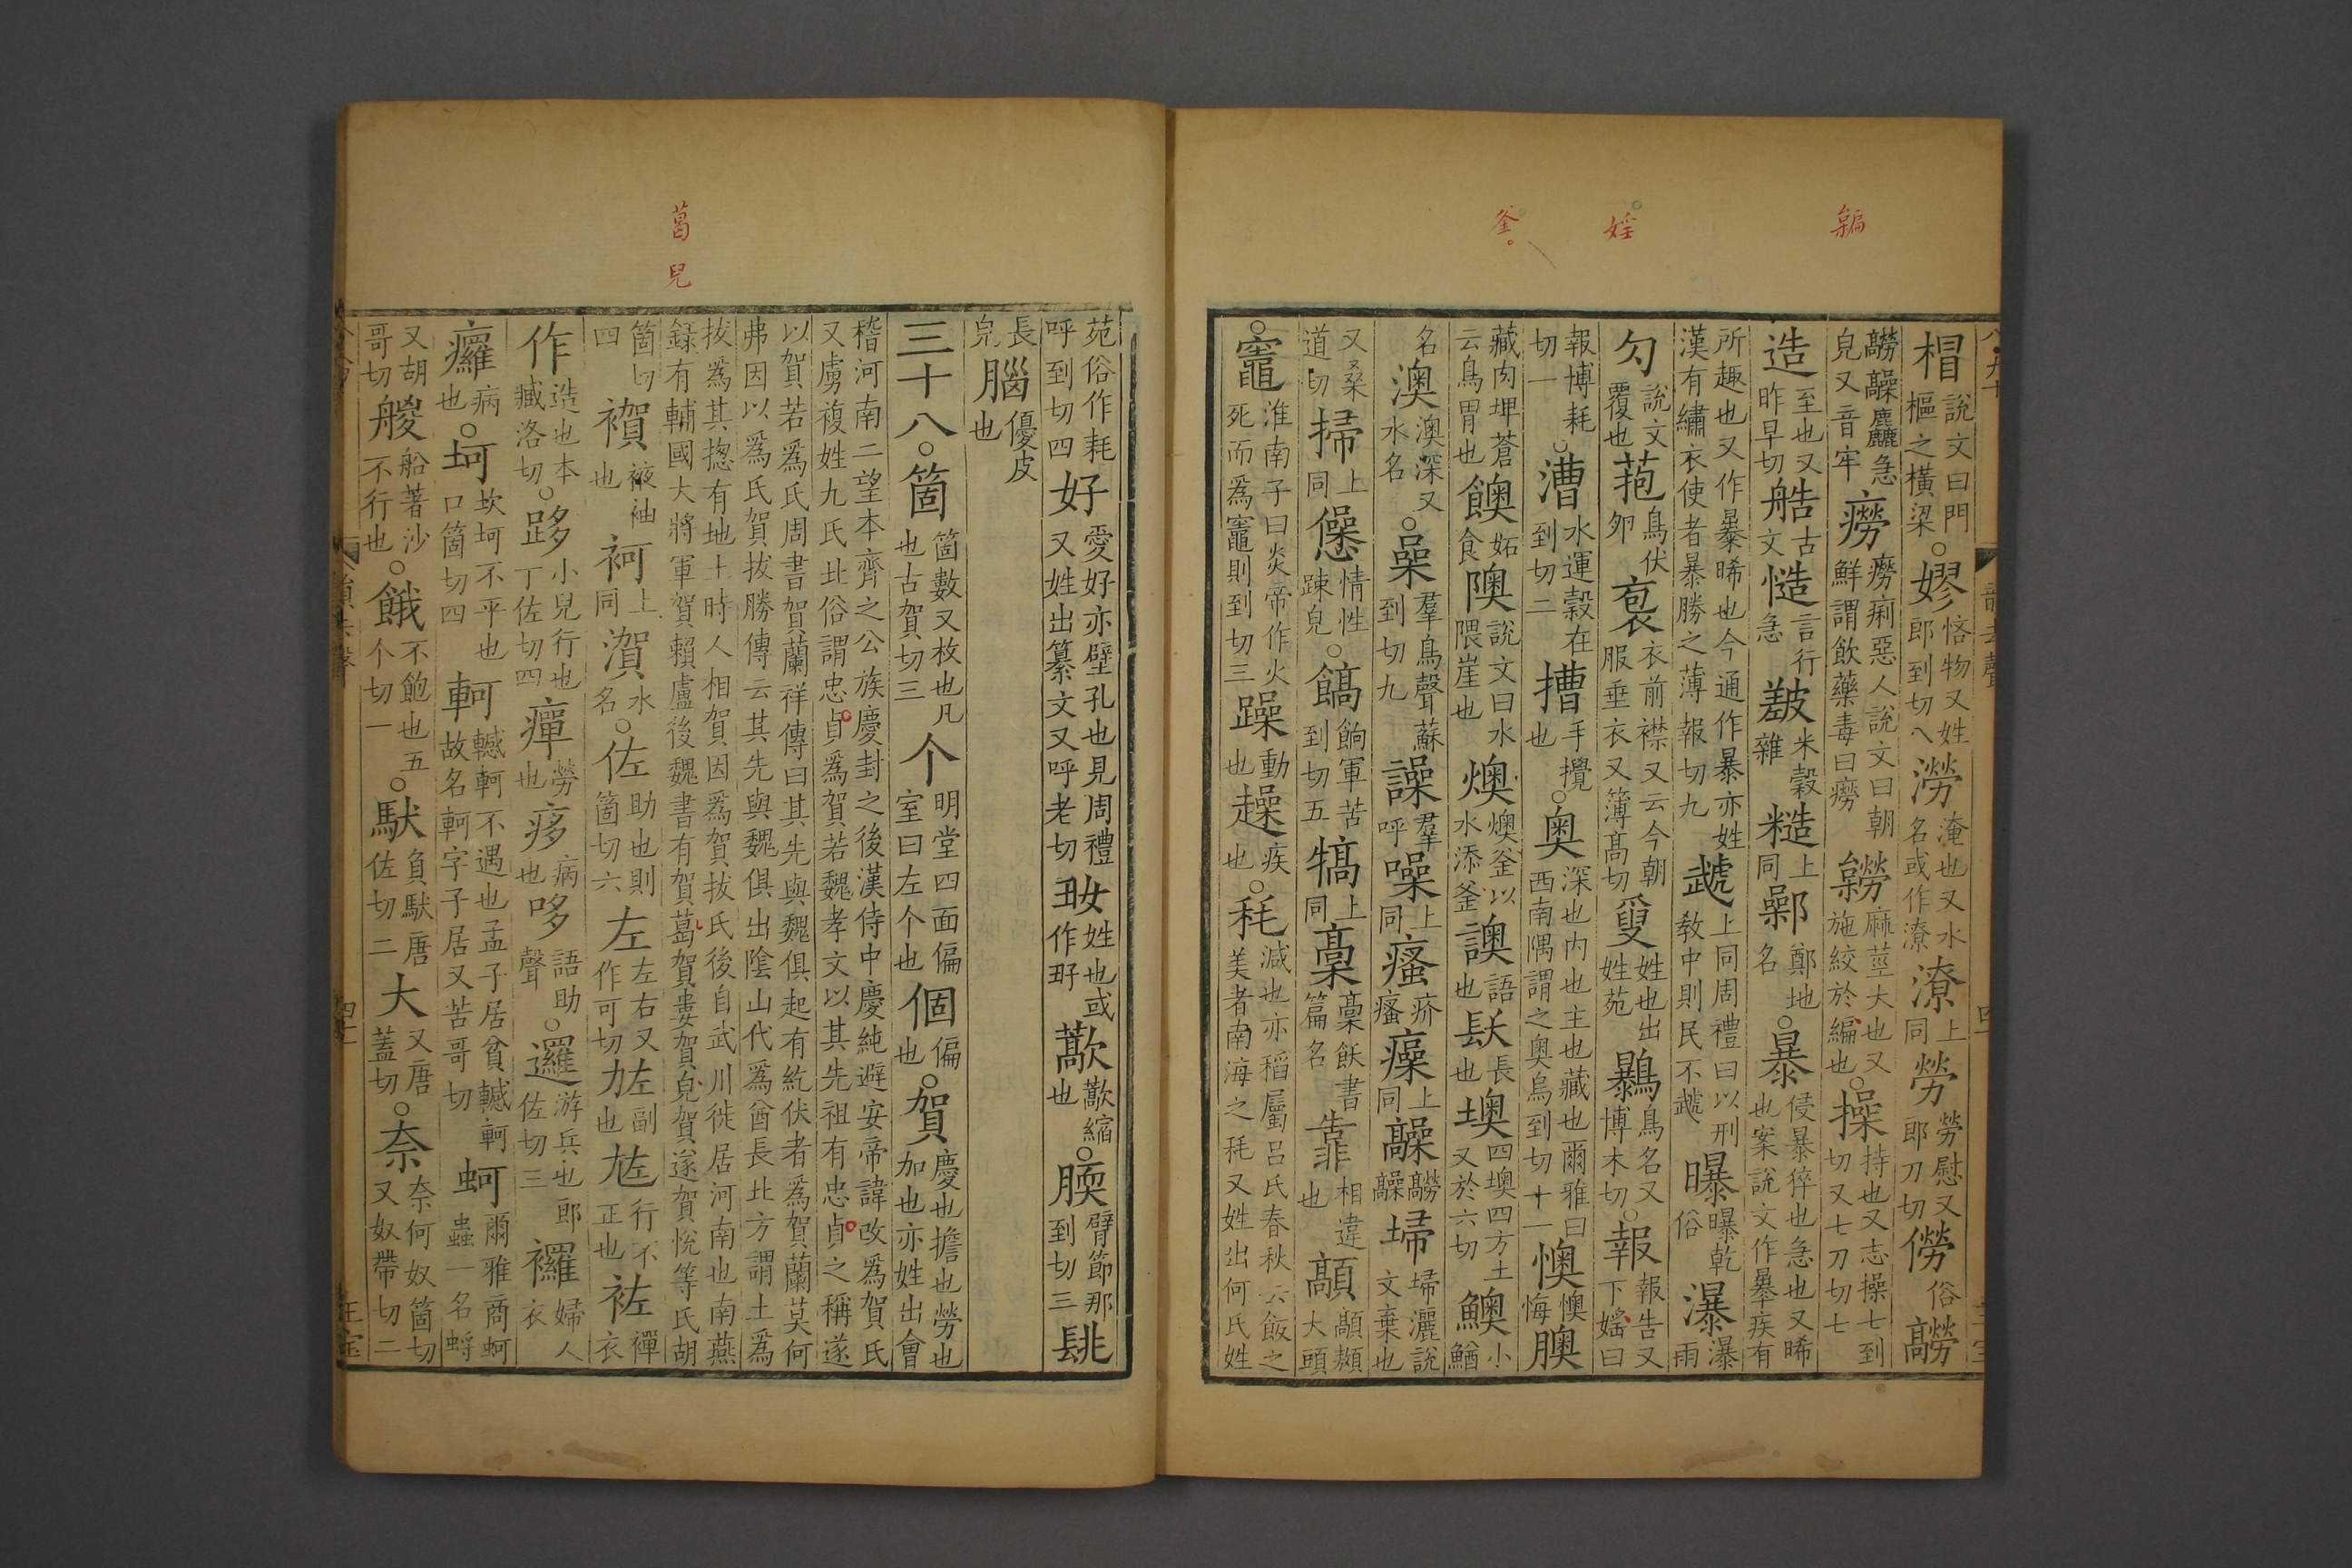 𣚙
婬
釜
椙說文曰門樞之橫梁○嫪悋物又姓郎到切八澇淹也又水名或作潦潦上同勞勞慰又郎刀切僗俗髝
髝髞麤急皃又音牢癆癆痢惡人說文曰朝鮮謂飲藥毒曰癆䜎麻莖大也又施絞於編也○操持也又志操七到切又七刀切七
造至也又昨早切艁古文慥言行急䊬米穀雜糙上同鄵鄭地名○暴侵暴猝也急也又晞也案說文作㬥疾有
所趣也又作暴晞也今通作暴亦姓漢有繡衣使者暴勝之薄報切九虣上同周禮曰以刑教中則民不虣曝曝乾俗瀑瀑雨
勽說文覆也菢鳥伏卵袌衣前襟又云今朝服垂衣又簿高切㝧姓也出姓苑鸔鳥名又博木切○報報告又下婬曰
報博耗切一○漕水運穀在到切二𢲵手攪也○奧深也內也主也藏也爾雅曰西南隅謂之奧烏到切十一懊懊悔腴
藏肉埤蒼云鳥胃也䬒妬食隩說文曰水隈崖也燠燠釜以水添釜譳語也镺長也墺四墺四方土又於六切䱣小鰌
名澳澳深又水名○喿羣鳥聲蘇到切九譟羣呼噪上同瘙疥瘙㿋上同髞髝髞埽埽灑說文棄也
又桑道切掃上同㥽情性疎皃○䭌餉軍苦到切五犒上同槀槀飫書篇名靠相違也顤顤䫜大頭
○竈淮南子曰炎帝作火死而為竈則到切三躁動也趮疾也○秏減也亦稻屬呂氏春秋云飯之美者南海之秏又姓出何氏姓
葛
兒
苑俗作耗呼到切四好愛好亦璧孔也見周禮又姓出纂文又呼老切𡚽姓也或作㝀歊歊縮也○腝臂節那到切三镻
長皃腦優皮也
三十八○箇箇數又枚也凡也古賀切三个明堂四面偏室曰左个也個偏也○賀慶也擔也勞也加也亦姓出會
稽河南二望本齊之公族慶封之後漢侍中慶純避安帝諱改為賀氏又虜複姓九氏北俗謂忠貞為賀若魏孝文以其先祖有忠貞之稱遂
以賀若為氏周書賀蘭祥傳曰其先與魏俱起有紇伏者為賀蘭莫何弗因以為氏賀拔勝傳云其先與魏俱出陰山代為酋長北方謂土為
拔為其揔有地土時人相賀因為賀拔氏後自武川徙居河南也南燕錄有輔國大將軍賀賴盧後魏書有賀葛賀婁賀兒賀遂賀悅等氏胡
箇切四䙤袯袖也袔上同㵑水名○佐助也則箇切六左左右又作可切㔫副也尪行不正也袏襌衣
作造也本臧洛切○跢小兒行也丁佐切四癉勞也痑病也哆語助聲○邏游兵也郎佐切三𧟌婦人衣
癳病也○坷坎坷不平也口箇切四軻轗軻不遇也孟子居貧轗軻故名軻字子居又苦哥切蚵爾雅商蚵蟲一名蜉
又胡哥切䑺船著沙不行也○餓不飽也五个切一○馱負馱唐佐切二大又唐蓋切○柰奈何奴箇切又奴帶切二